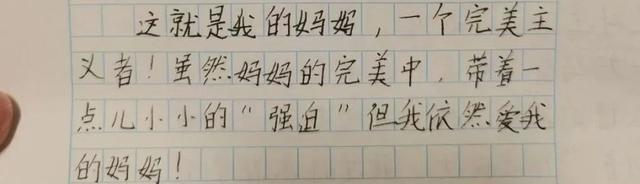 这就是我的妈妈，一个完美主
义者！虽然妈妈的完美中，带着一
点儿小小的“强迫”但我依然爱我
的妈妈！